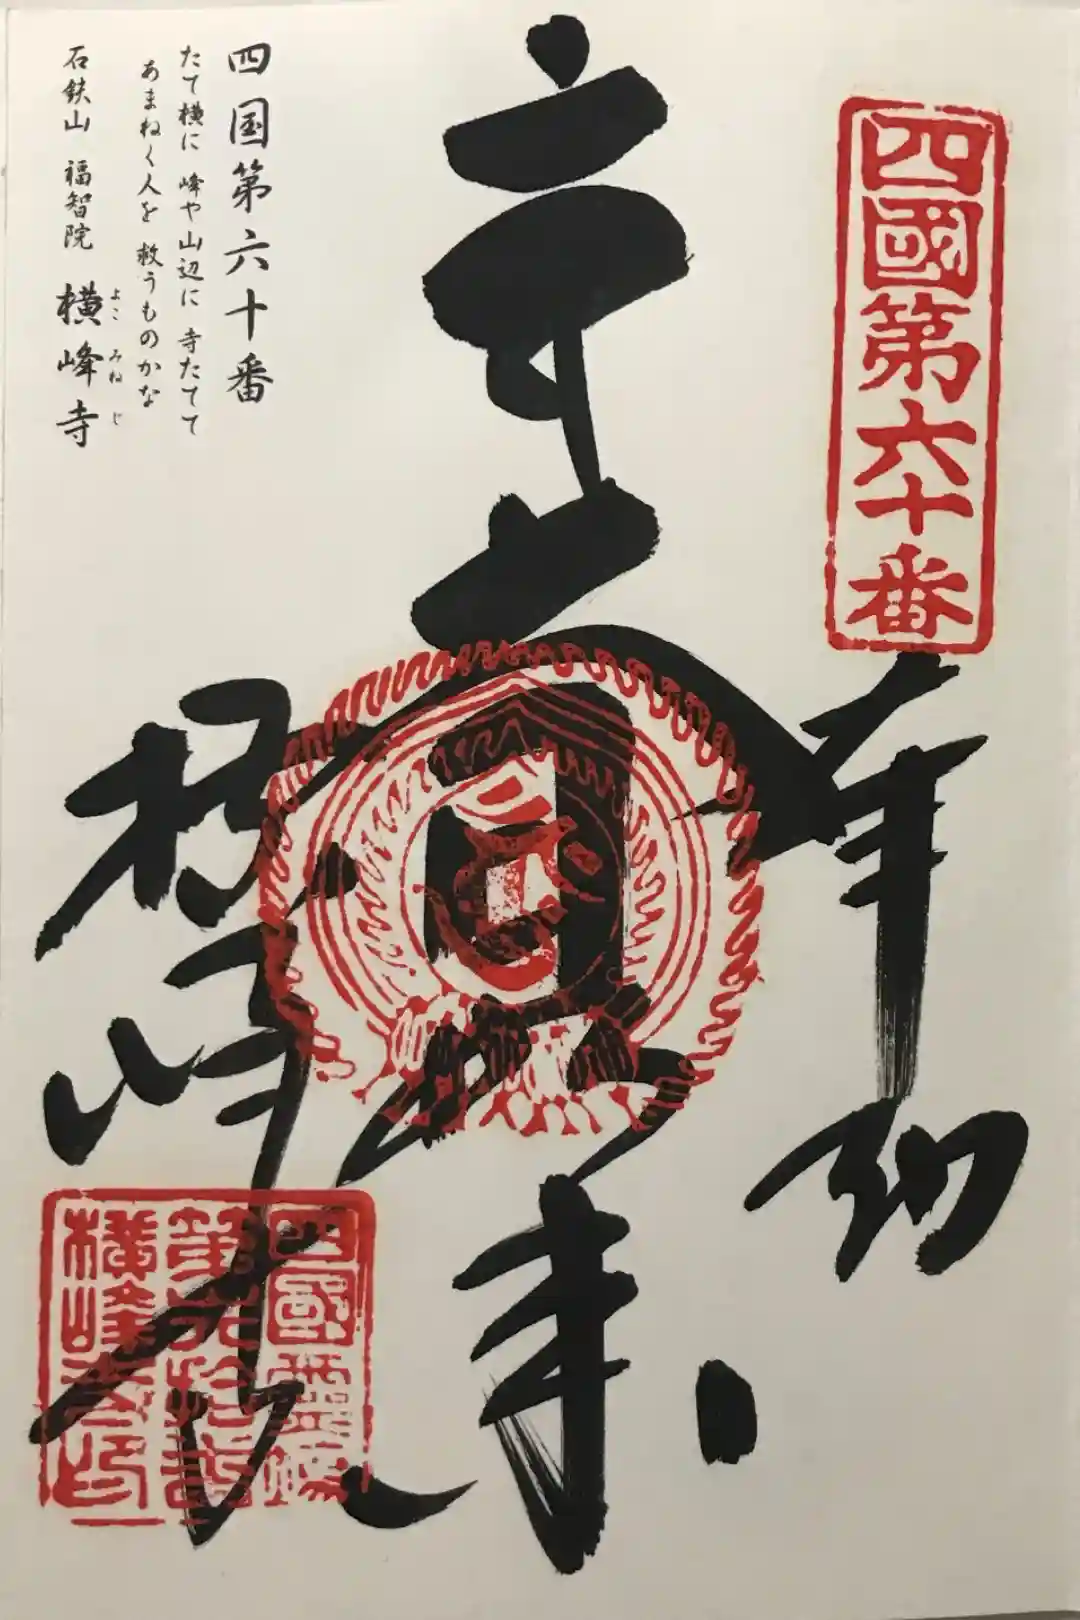 四國第六十番
奉納
大日如来
横峰寺
四国第六十番
たて横に 峰や山辺に 寺たてて
あまねく人を 救うものかな
石鉄山 福智院 横峰寺
よこ みね じ
四國霊場
第六拾番
横峰寺印